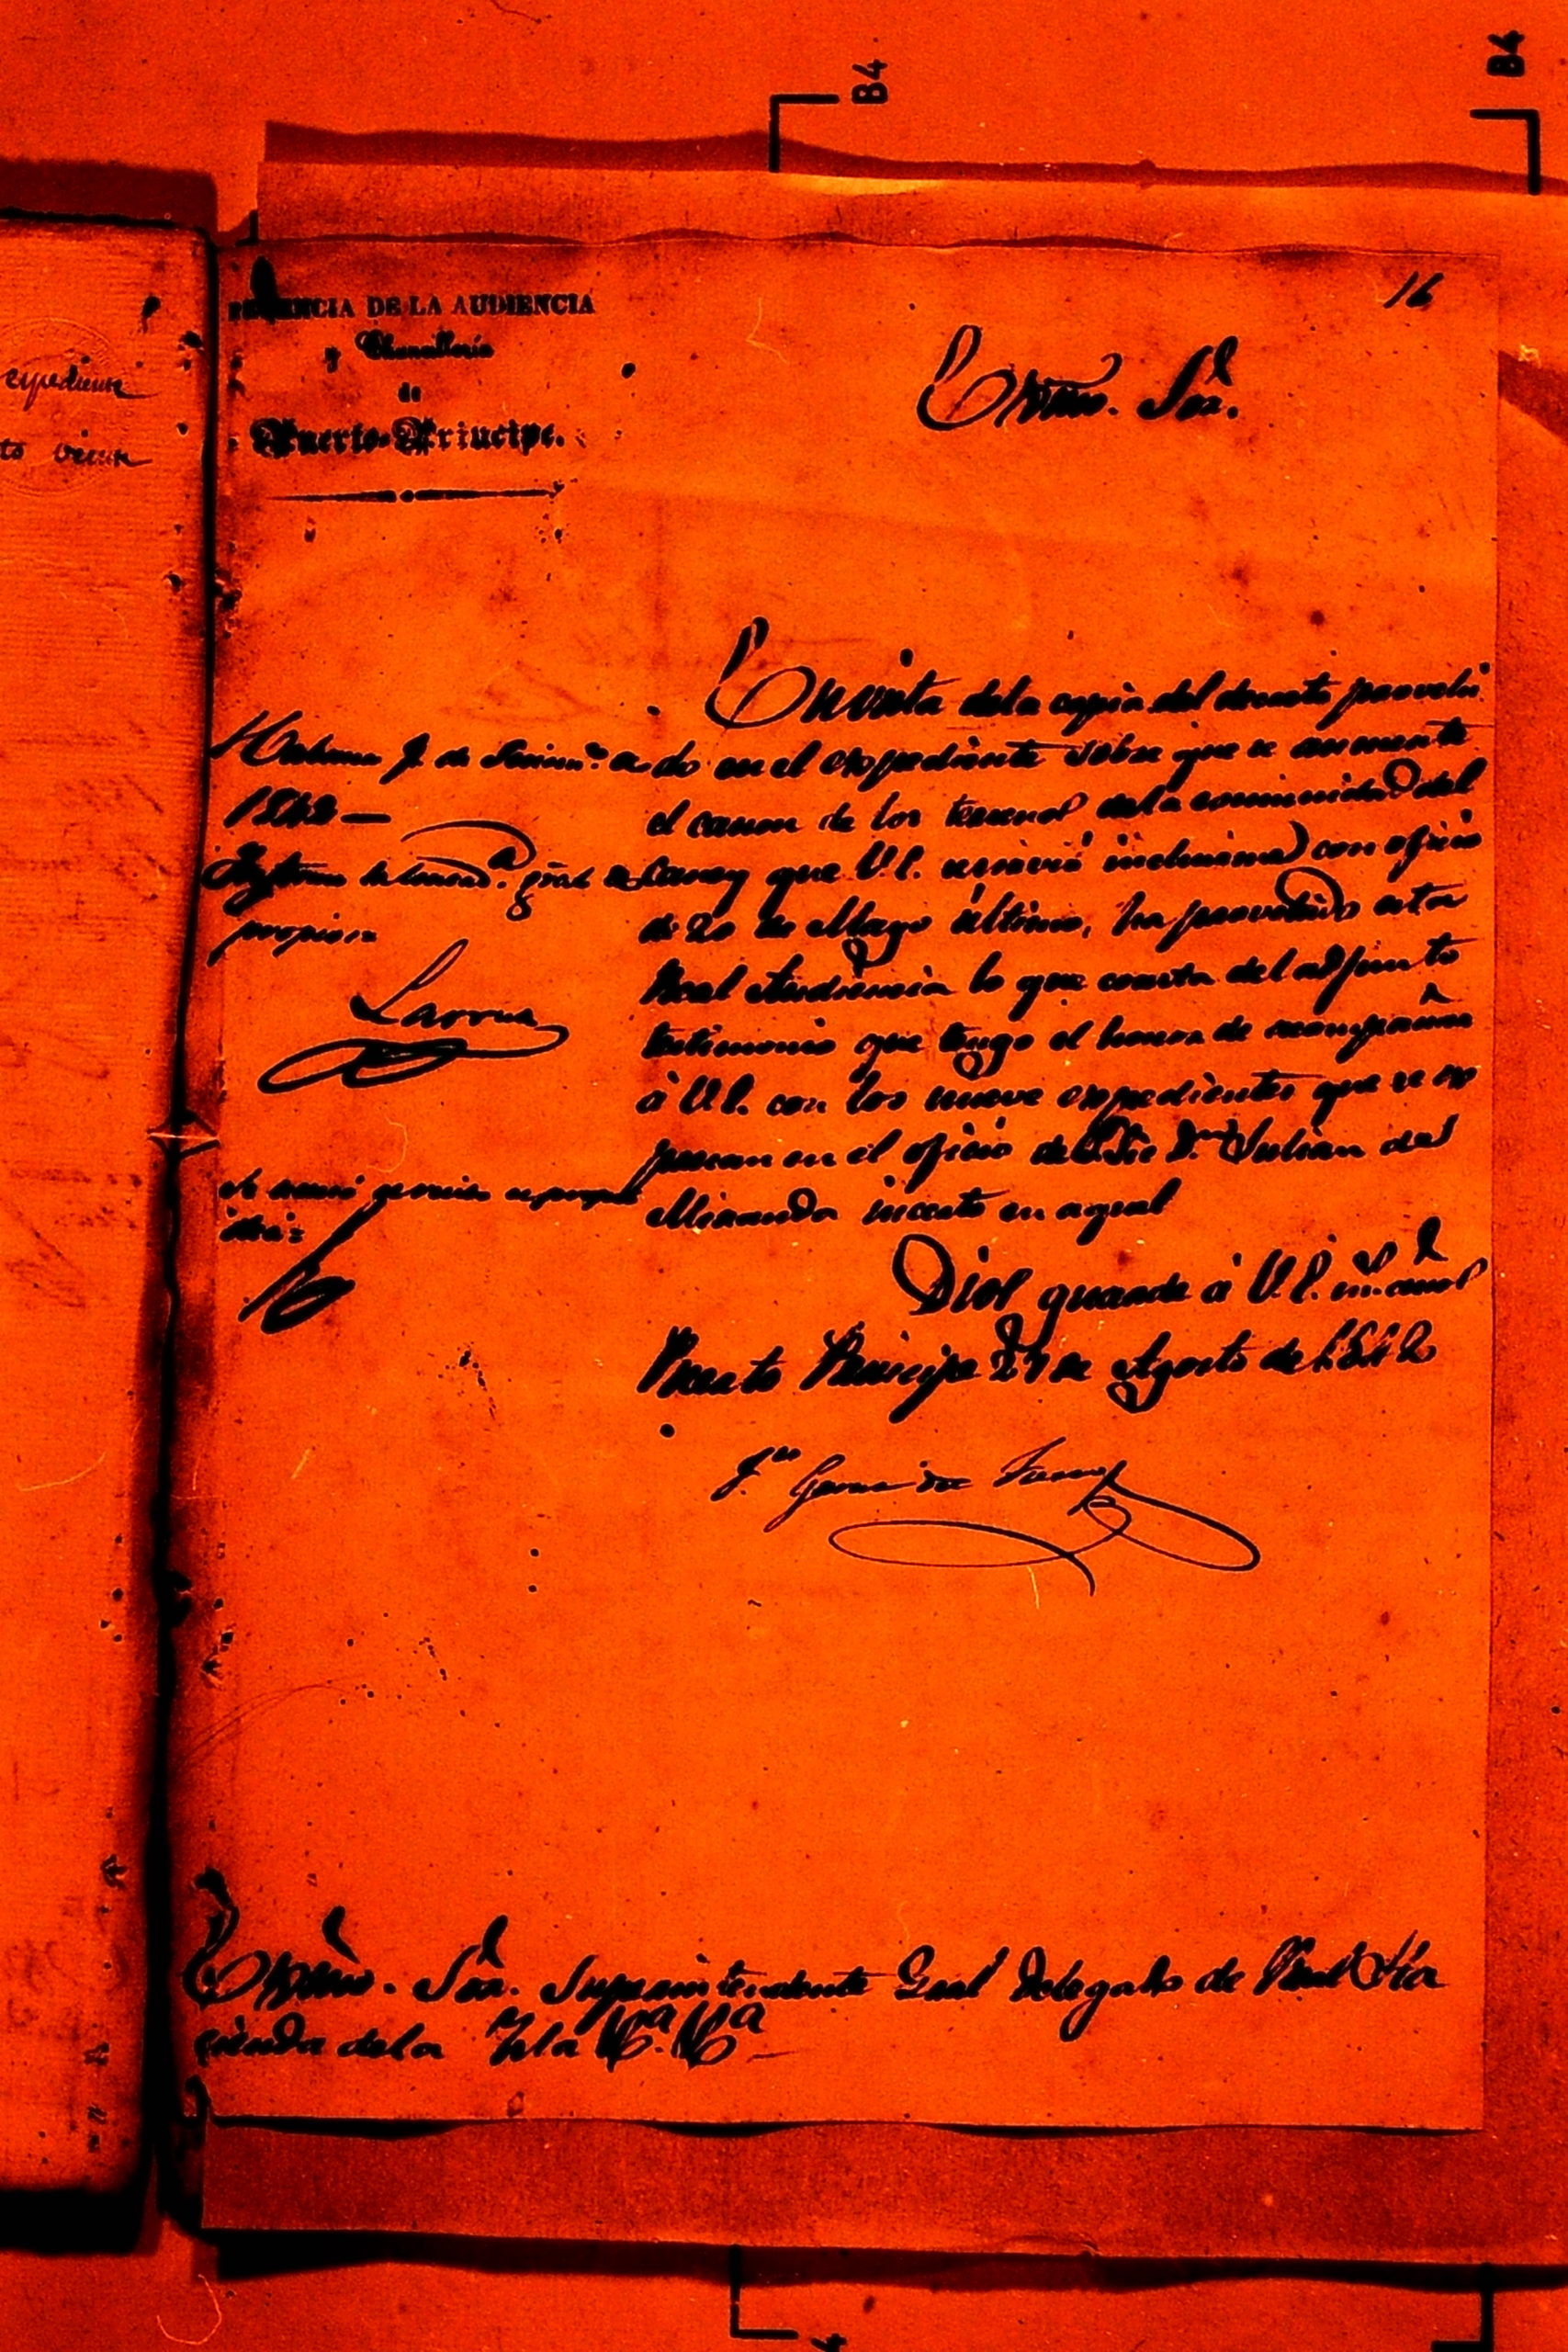 B4
B4
16
REGENCIA DE LA AUDIENCIA
y Chancilleria
de
Puerto-Principe.
Exmo. Sor.
expediente
to
En vista dela copia del decreto provehi
do en el expediente sobre que se aumente
el canon de los terrenos dela comunidad del
Caney que V.E. remitió inclusive con oficio
de 20 de Mayo último, ha provehido esta
Real Audiencia lo que consta del adjunto
testimonio que tengo el honor de acompañar
à V.E. con los nueve expedientes que se ex
presan en el oficio del Sr. Dn. Julian de
Miranda inserto en aquel
Dios guarde à V.E. ms. años
Puerto Principe 27 de Agosto de 1842
Habana 7 de
1842 —
Informe gral de
propios
Larrua
Exmo. Sor. Superintendente Gral Delegado de Real Ha
cienda dela Isla